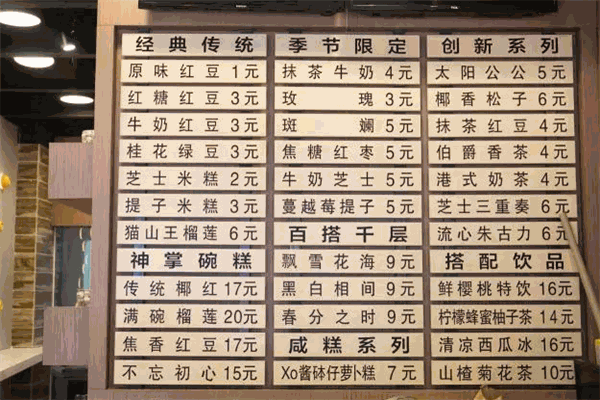 经典传统
原味红豆 1元
红糖红豆 3元
牛奶红豆 3元
桂花绿豆 3元
芝士米糕 2元
提子米糕 3元
猫山王榴莲 6元
神掌碗糕
传统椰红 17元
满碗榴莲 20元
焦香红豆 17元
不忘初心 15元
季节限定
抹茶牛奶 4元
玫瑰 3元
斑斓 5元
焦糖红枣 5元
牛奶芝士 5元
蔓越莓提子 5元
百搭千层
飘雪花海 9元
黑白相间 9元
春分之时 9元
咸糕系列
Xo酱砵仔萝卜糕 7元
创新系列
太阳公公 5元
椰香松子 6元
抹茶红豆 4元
伯爵香茶 4元
港式奶茶 4元
芝士三重奏 6元
流心朱古力 6元
搭配饮品
鲜樱桃特饮 16元
柠檬蜂蜜柚子茶 14元
清凉西瓜冰 16元
山楂菊花茶 10元